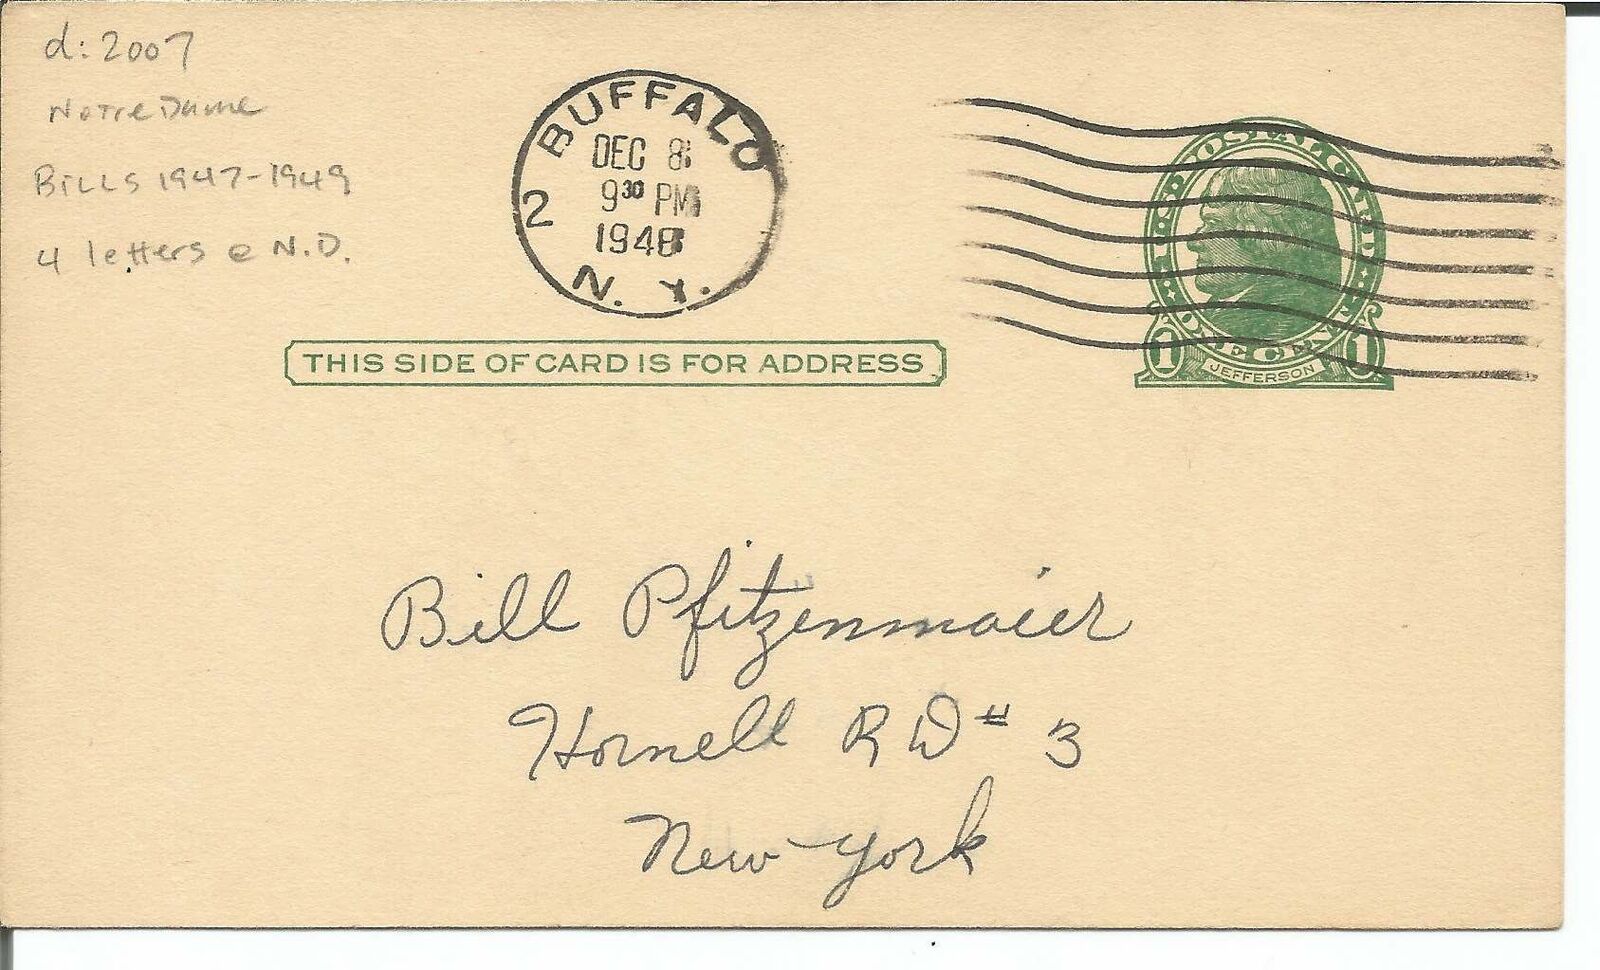 d: 2007
Notre Dame
BILLS 1947-1949
4 letters @ N.D.
BUFFALO
DEC 8
9 30 PM
1948
2
N. Y.
U.S. POSTAL CARD
1 ONE CENT 1
JEFFERSON
THIS SIDE OF CARD IS FOR ADDRESS
Bill Pfitzenmaier
Hornell R D # 3
New York